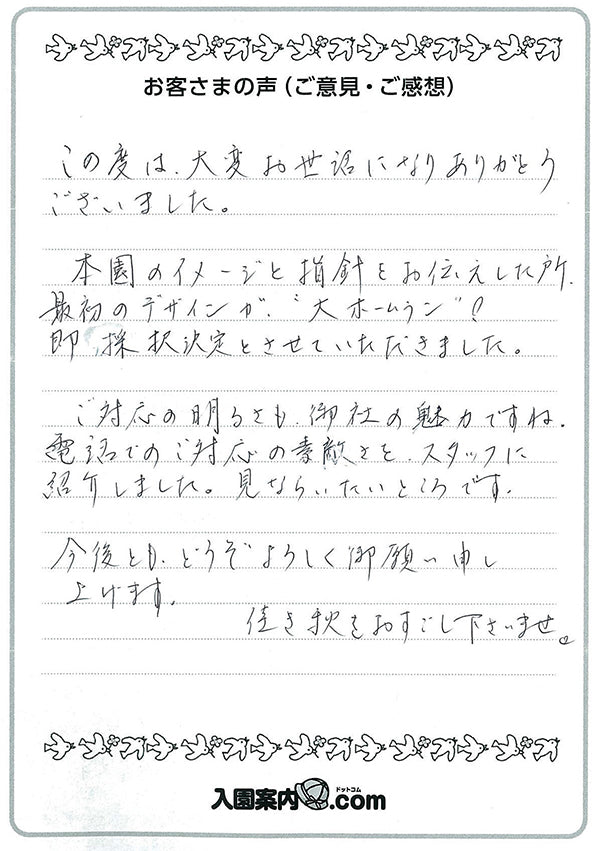 お客さまの声（ご意見・ご感想）
この度は、大変お世話になりありがとう
ございました。
本園のイメージと指針をお伝えした所、
最初のデザインが、“大ホームラン”！
即、採択決定とさせていただきました。
ご対応の明るさも、御社の魅力ですね。
電話でのご対応の素敵さを、スタッフに
紹介しました。見ならいたいところです。
今後とも、どうぞよろしく御願い申し
上げます。
佳き秋をおすごし下さいませ。
入園案内ドットコム.com